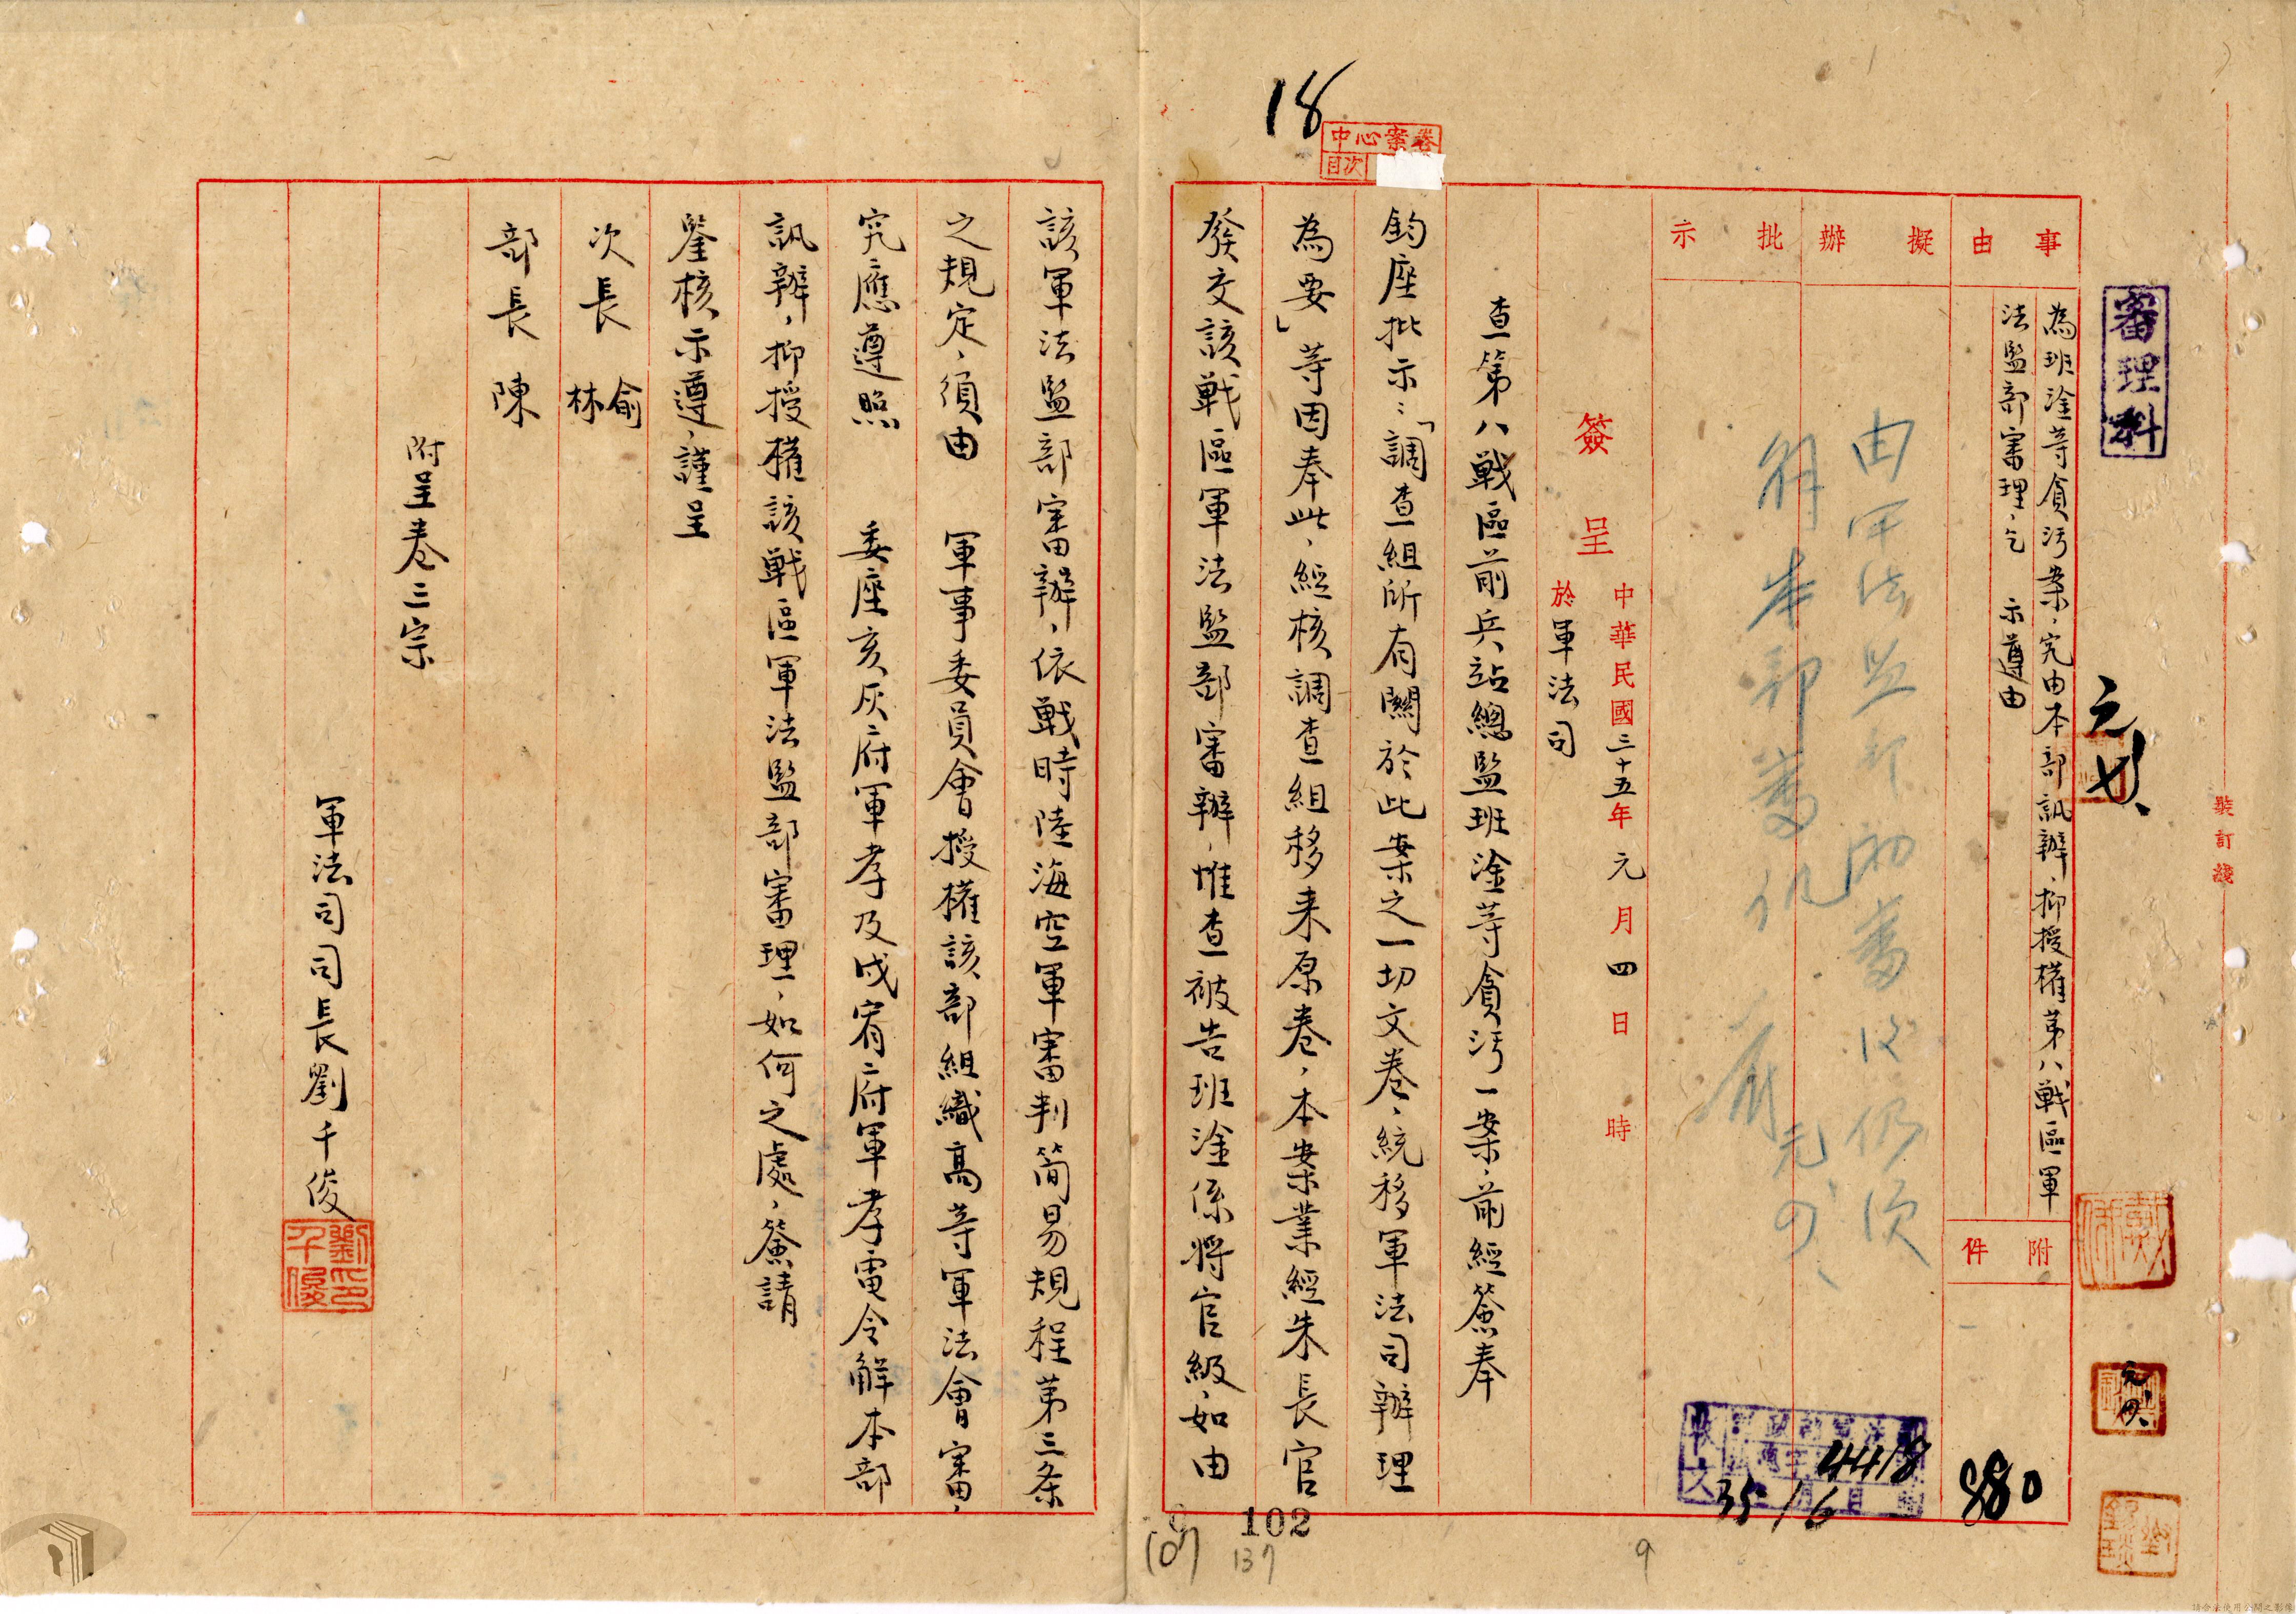 審理科
裝訂綫
事由
為班淦等貪污案，究由本部訊辦，抑授權第八戰區軍
法監部審理，乞 示遵由
附件
880
擬辦
批示
由軍法監部初審後仍須
解本部審判
元、四、
簽呈
中華民國三十五年元月四日 時
於軍法司
4418
35 1/6
收文
查第八戰區前兵站總監班淦等貪污一案，前經簽奉
鈞座批示：「調查組所有關於此案之一切文卷，統移軍法司辦理
為要」等因奉此，經核調查組移來原卷，本案業經朱長官
發交該戰區軍法監部審辦，惟查被告班淦係將官級，如由
18
中心案卷
目次
102
107
137
9
該軍法監部審辦，依戰時陸海空軍審判簡易規程第三条
之規定，須由 軍事委員會授權該部組織高等軍法會審，
究應遵照 委座亥灰二府軍孝及戌宥二府軍孝電令解本部
訊辦，抑授權該戰區軍法監部審理，如何之處，簽請
鑒核示遵，謹呈
次長 俞 林
部長 陳
附呈卷三宗
軍法司司長劉千俊
劉千俊印